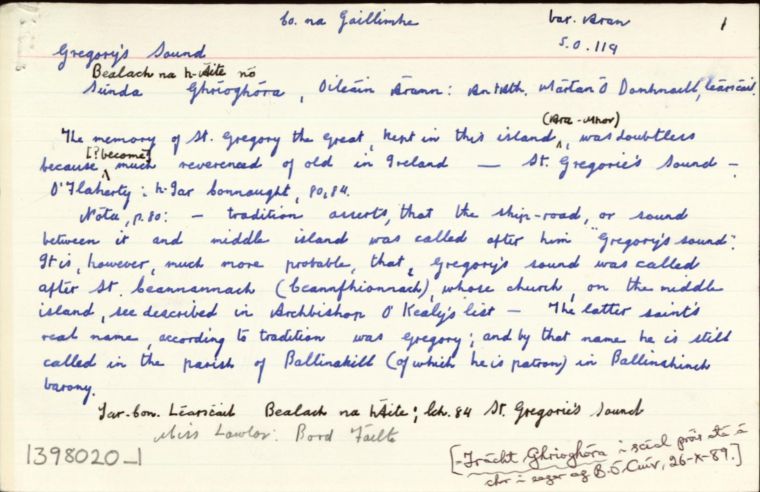 Co. na Gaillimhe bar. Aran 1
S.O. 119
Gregory's Sound
Bealach na h-Áite nó
Súnda Ghríoghóra, Oileáin Árann: An tAth. Mártan Ó Domhnaill, léarscáil.
(Ara-Mhor)
The memory of St. Gregory the Great, kept in this island ^, was doubtless
[?become]
because ^ much reverenced of old in Ireland — St. Gregorie's Sound —
O'Flaherty: h-Iar Connaught, 80, 84.
Nóta, p. 80: — tradition asserts, that the ship-road, or sound
between it and middle island was called after him "Gregory's sound".
It is, however, much more probable, that, Gregory's sound was called
after St. Ceannannach (Ceannfhionnach), whose church, on the middle
island, see described in Archbishop O'Kealy's list — The latter saint's
real name, according to tradition was Gregory; and by that name he is still
called in the parish of Ballinakill (of which he is patron) in Ballinahinch
barony.
Iar-Con. Léarscáil Bealach na hÁite; lch. 84 St. Gregorie's Sound
Miss Lawlor: Bord Fáilte
1398020_1
[-Trácht Ghríoghóra i scéal próis atá á
chr i eagar ag B. Ó Cuív, 26-X-89.]